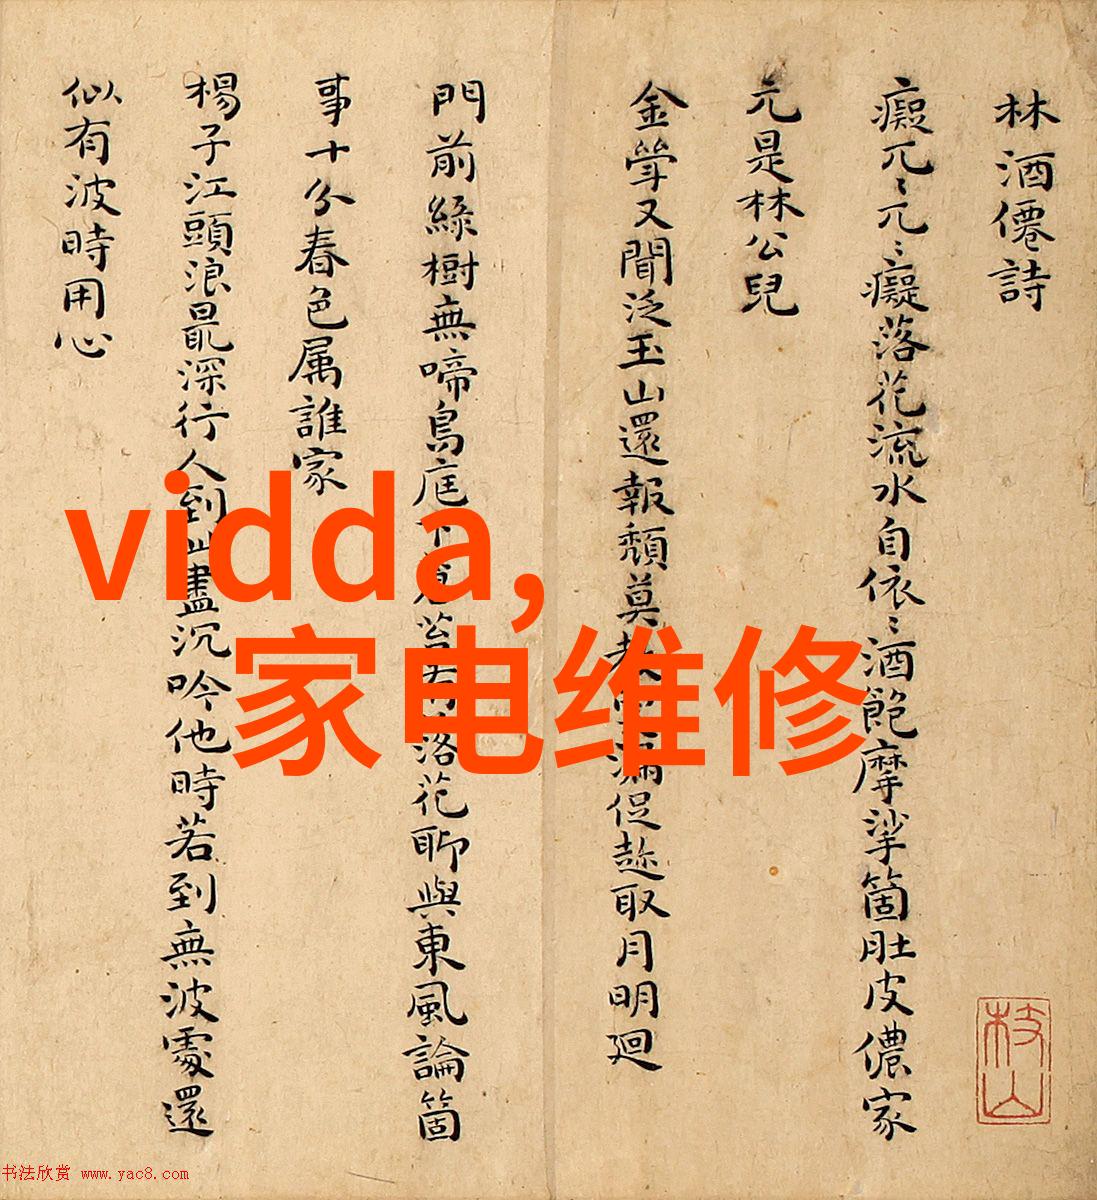 林酒僊詩
癡兀〻兀〻癡落花流水自依〻酒飽摩挲箇肚皮儂家
元是林公兒
金犖又聞泛玉山還報頽莫教漏促趂取月明廻
門前綠樹無啼鳥庭下落花聊與東風論箇
事十分春色属誰家
楊子江頭浪最深行人到此盡沉吟他時若到無波處還
似有波時用心
枝山
vidda,
家电维修
书法欣赏 www.yac8.com